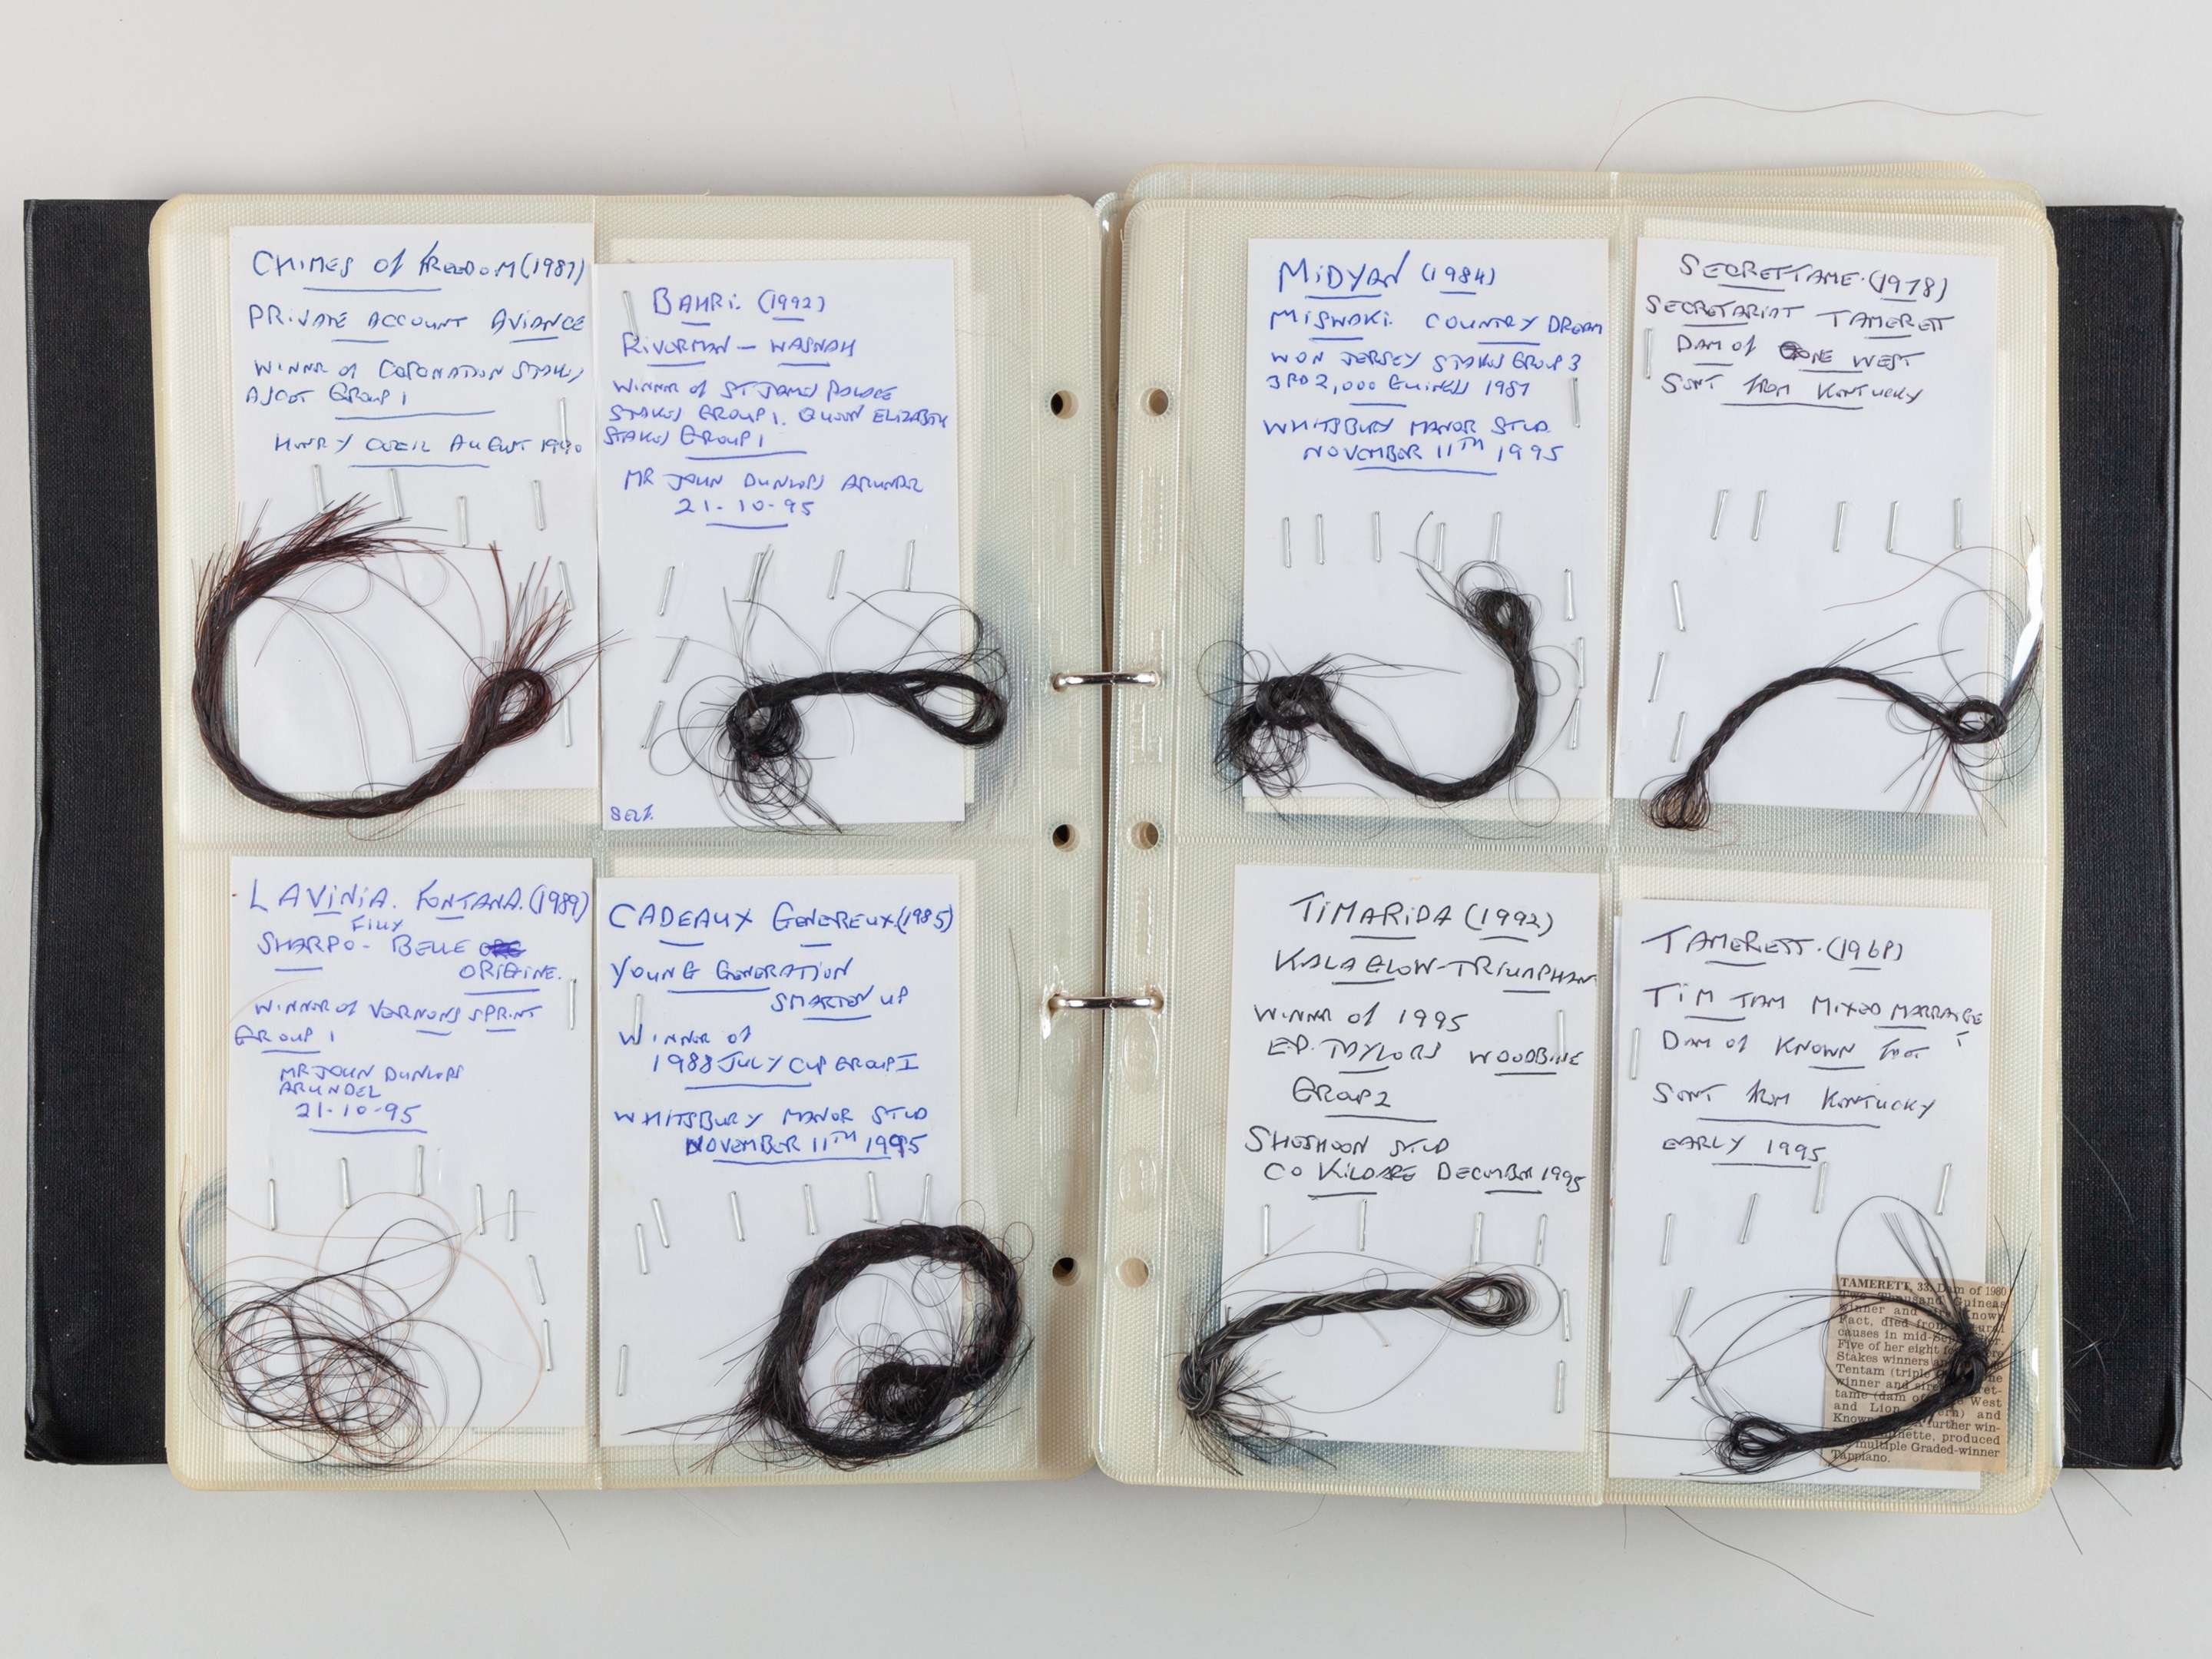 CHIMES of FREEDOM (1987)
PRIVATE ACCOUNT AVIANCE
WINNR of CORONATION STAKES
ASCOT GROUP 1
HENRY CECIL AUGUST 1990
BAHRI. (1992)
RIVERMAN - WASNAH
WINNR of ST JAMES PALACE
STAKES GROUP 1. QUEEN ELIZABETH
STAKES GROUP 1
MR JOHN DUNLOPS ARUNDEL
21-10-95
LAVINIA. FONTANA. (1989)
FILLY
SHARPO - BELLE
ORIGINE.
WINNR of VERNONS SPRINT
GROUP 1
MR JOHN DUNLOPS
ARUNDEL
21-10-95
CADEAUX GENEREUX. (1985)
YOUNG GENERATION
SMARTEN UP
WINNER of
1988 JULY CUP GROUP I
WHITSBURY MANOR STUD
NOVEMBER 11TH 1995
MIDYAN (1984)
MISWAKI. COUNTRY DREAM
WON JERSEY STAKES GROUP 3
3RD 2,000 GUINEAS 1987
WHITSBURY MANOR STUD.
NOVEMBER 11TH 1995
SECRETTAME. (1978)
SECRETARIAT TAMERETT
DAM of GONE WEST
SENT FROM KENTUCKY
TIMARIDA (1992)
KALAGLOW-TRIUMPHAN
WINNR of 1995
E.P. TAYLORS WOODBINE
GROUP 2
SHESHOON STUD
CO KILDARE DECEMBER 1995
TAMERETT. (1968)
TIM TAM MIXED MARRAIGE
DAM of KNOWN FACT
SENT FROM KENTUCKY
EARLY 1995
TAMERETT, 33, Dam of 1980
Two Thousand Guineas
winner and Known
Fact, died from
causes in mid-
Five of her eight
Stakes winners
Tentam (triple
winner and sire
tame (dam of West
and Lion and
Known further win-
produced
multiple Graded-winner
Tappiano.